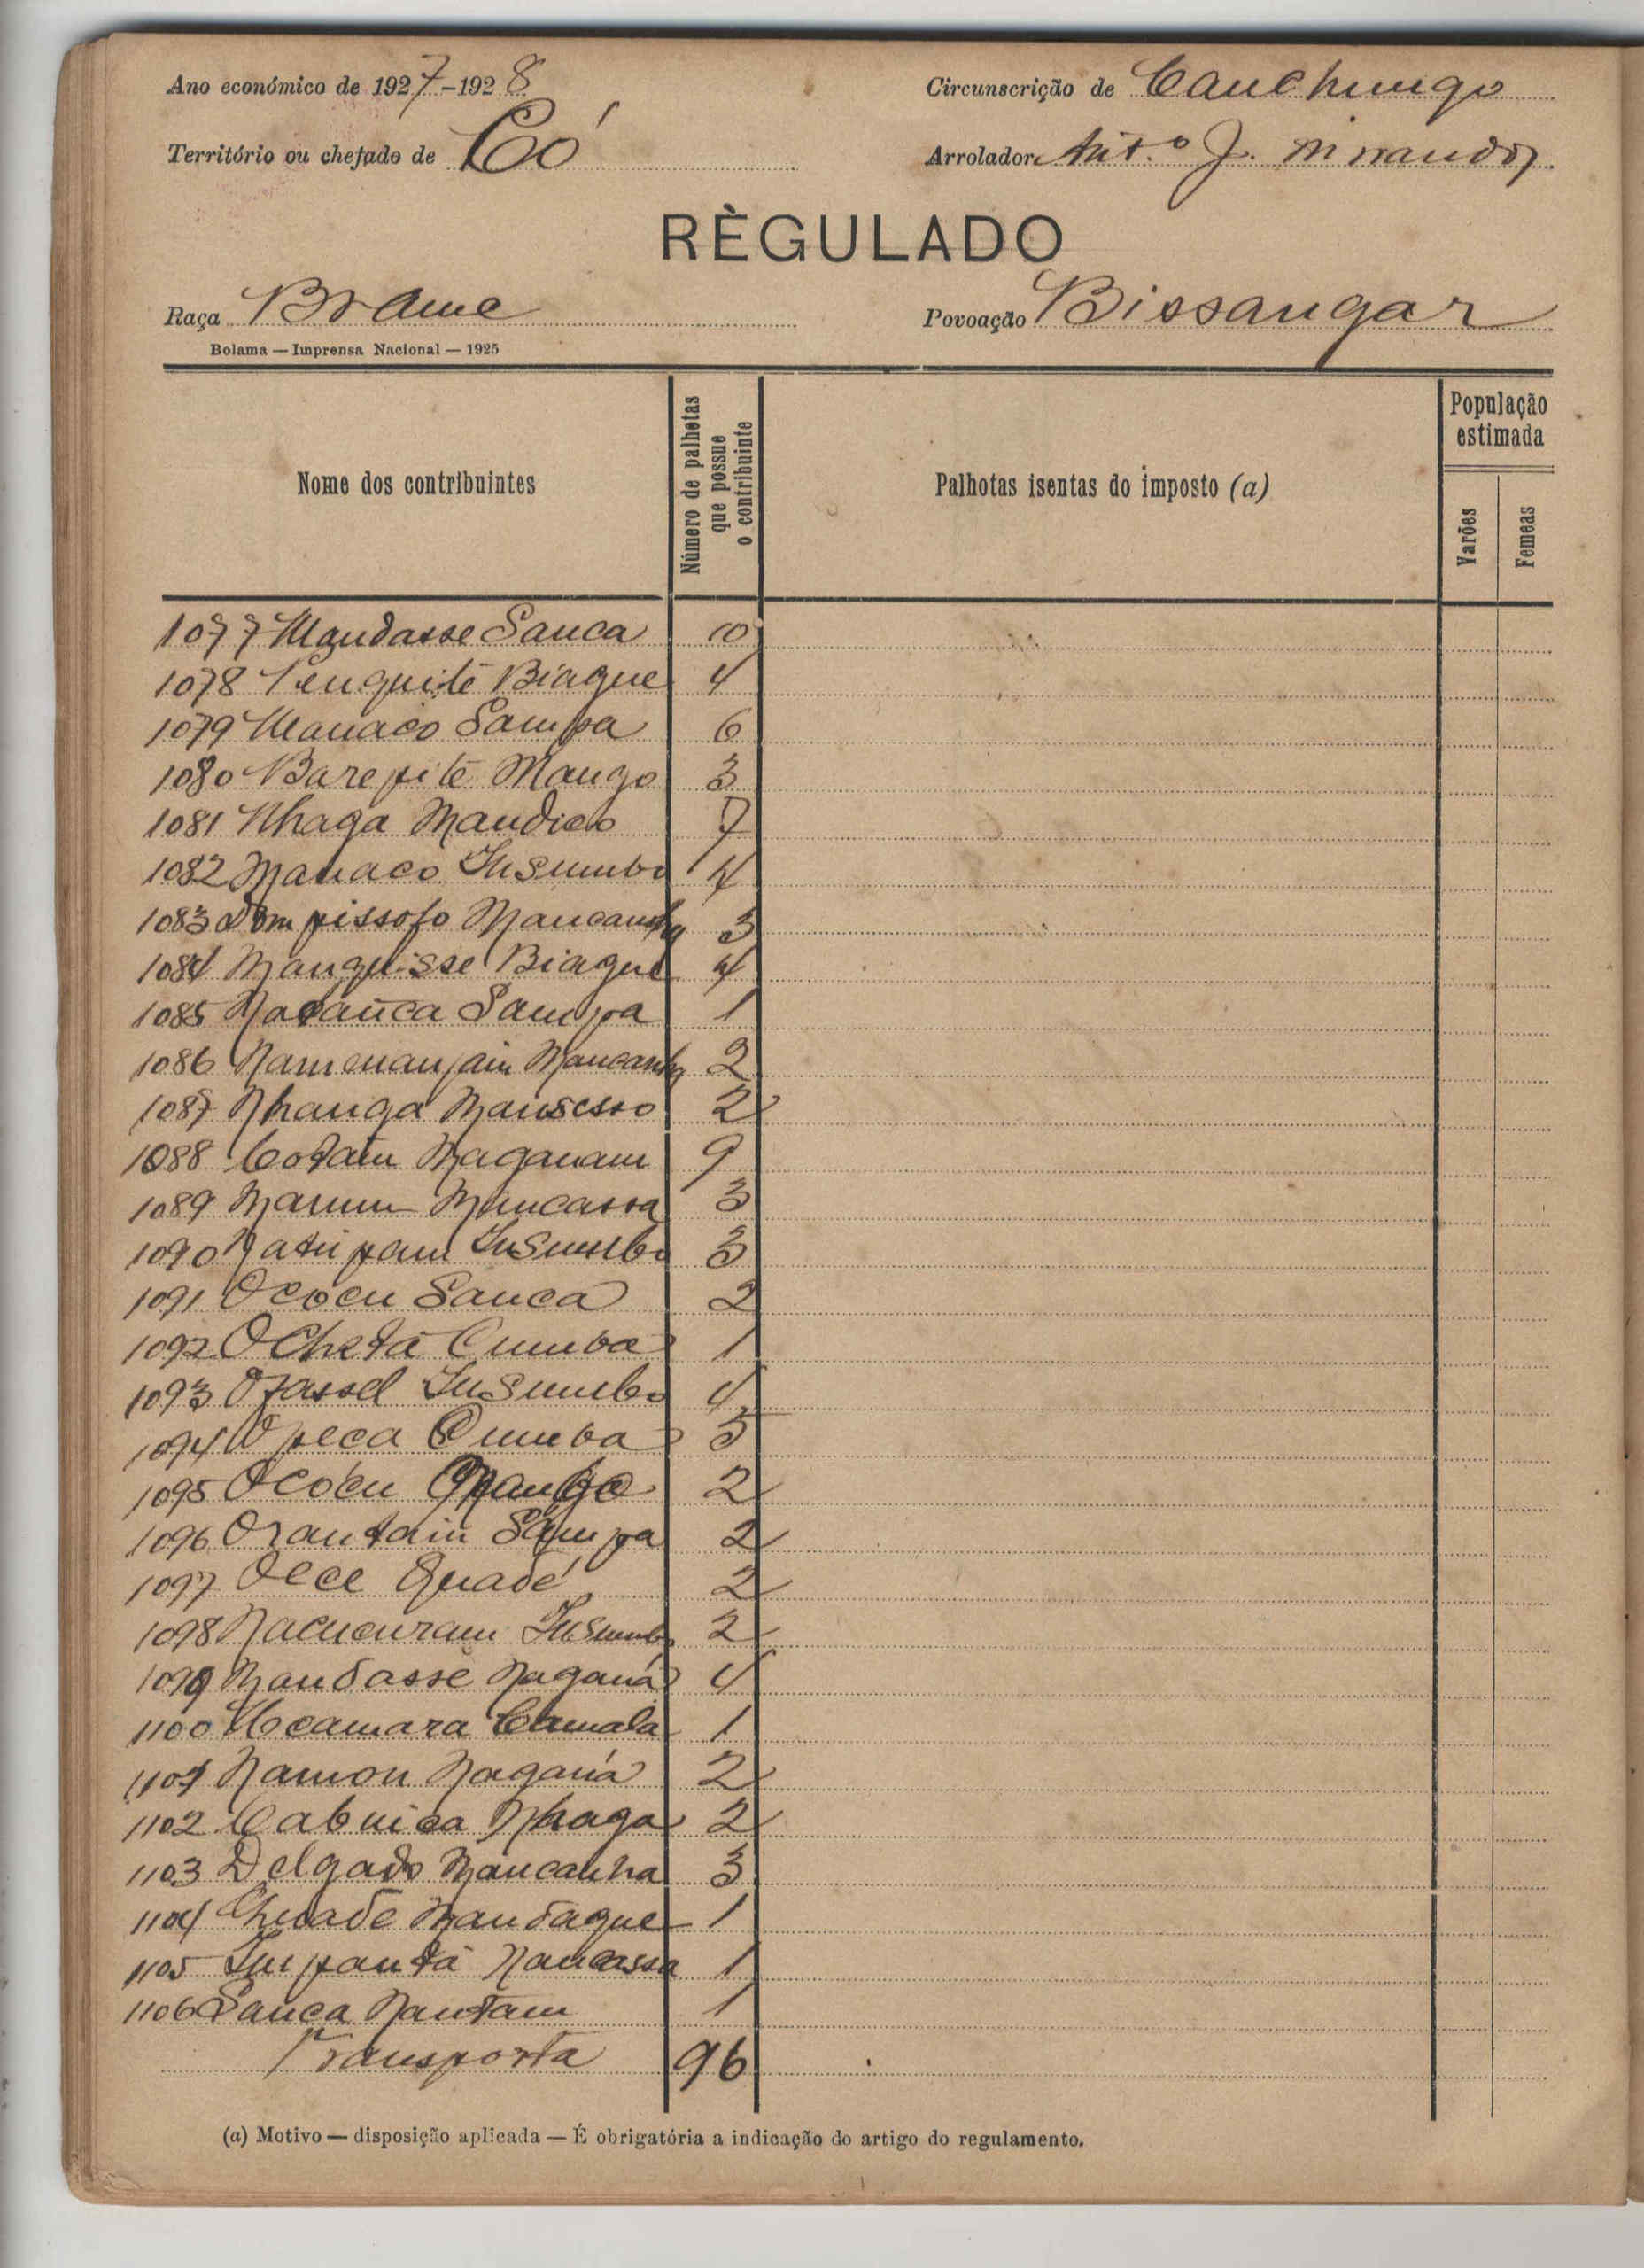 Ano económico de 1927-1928
Circunscrição de Canchungo
Território ou chefado de Có
Arrolador Ant.º J. Miranda
RÈGULADO
Raça Brame
Povoação Bissangar
Bolama — Imprensa Nacional — 1925
Nome dos contribuintes
Número de palhotas que possue o contribuinte
Palhotas isentas do imposto (a)
População estimada
Varões
Femeas
1077 Mandasse Sanca 10
1078 Penquité Biague 4
1079 Manaco Sampa 6
1080 Barepité Mango 3
1081 Nhaga Mandico 7
1082 Manaco Insumbo 4
1083 Dompissofo Mancanha 3
1084 Manquisse Biague 4
1085 Sampa 1
1086 Mancanha 2
1087 Nhanga Mansesso 2
1088 Cotam Naganam 9
1089 Manum Mancassa 3
1090 Natupam Insumbo 3
1091 Ococu Sanca 2
1092 Ochetá Cumba 1
1093 Ofassel Insumbo 4
1094 Opeca Cumba 5
1095 Ococu 2
1096 Orantain Sampa 2
1097 Olce Quadé 2
1098 Nacucuram Insumbo 2
1099 Mandasse Naganá 4
1100 Ucamara Camala 1
1101 Namon Naganá 2
1102 Cabuica Nhaga 2
1103 Delgado Mancanha 3
1104 Chuade Mandague 1
1105 Impantá Nancassa 1
1106 Sanca Nantam 1
Transporta 96
(a) Motivo — disposição aplicada — É obrigatória a indicação do artigo do regulamento.